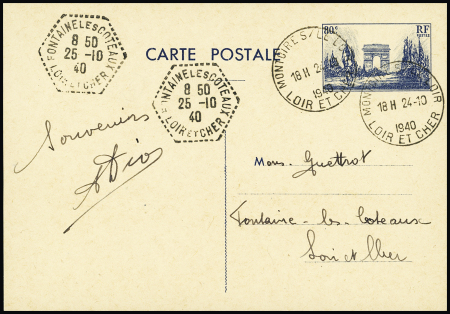 FONTAINE LES COTEAUX
8 50
25 -10
40
LOIR ET CHER
CARTE POSTALE
FONTAINE LES COTEAUX
8 50
25 -10
40
LOIR ET CHER
80c
RF
POSTES
MONTOIRE S/LE LOIR
18 H 24-10
1940
LOIR ET CHER
MONTOIRE S/LE LOIR
18 H 24-10
1940
LOIR ET CHER
Souvenirs
Mons. Guettrot
Fontaine-les-Coteaux
Loir et Cher